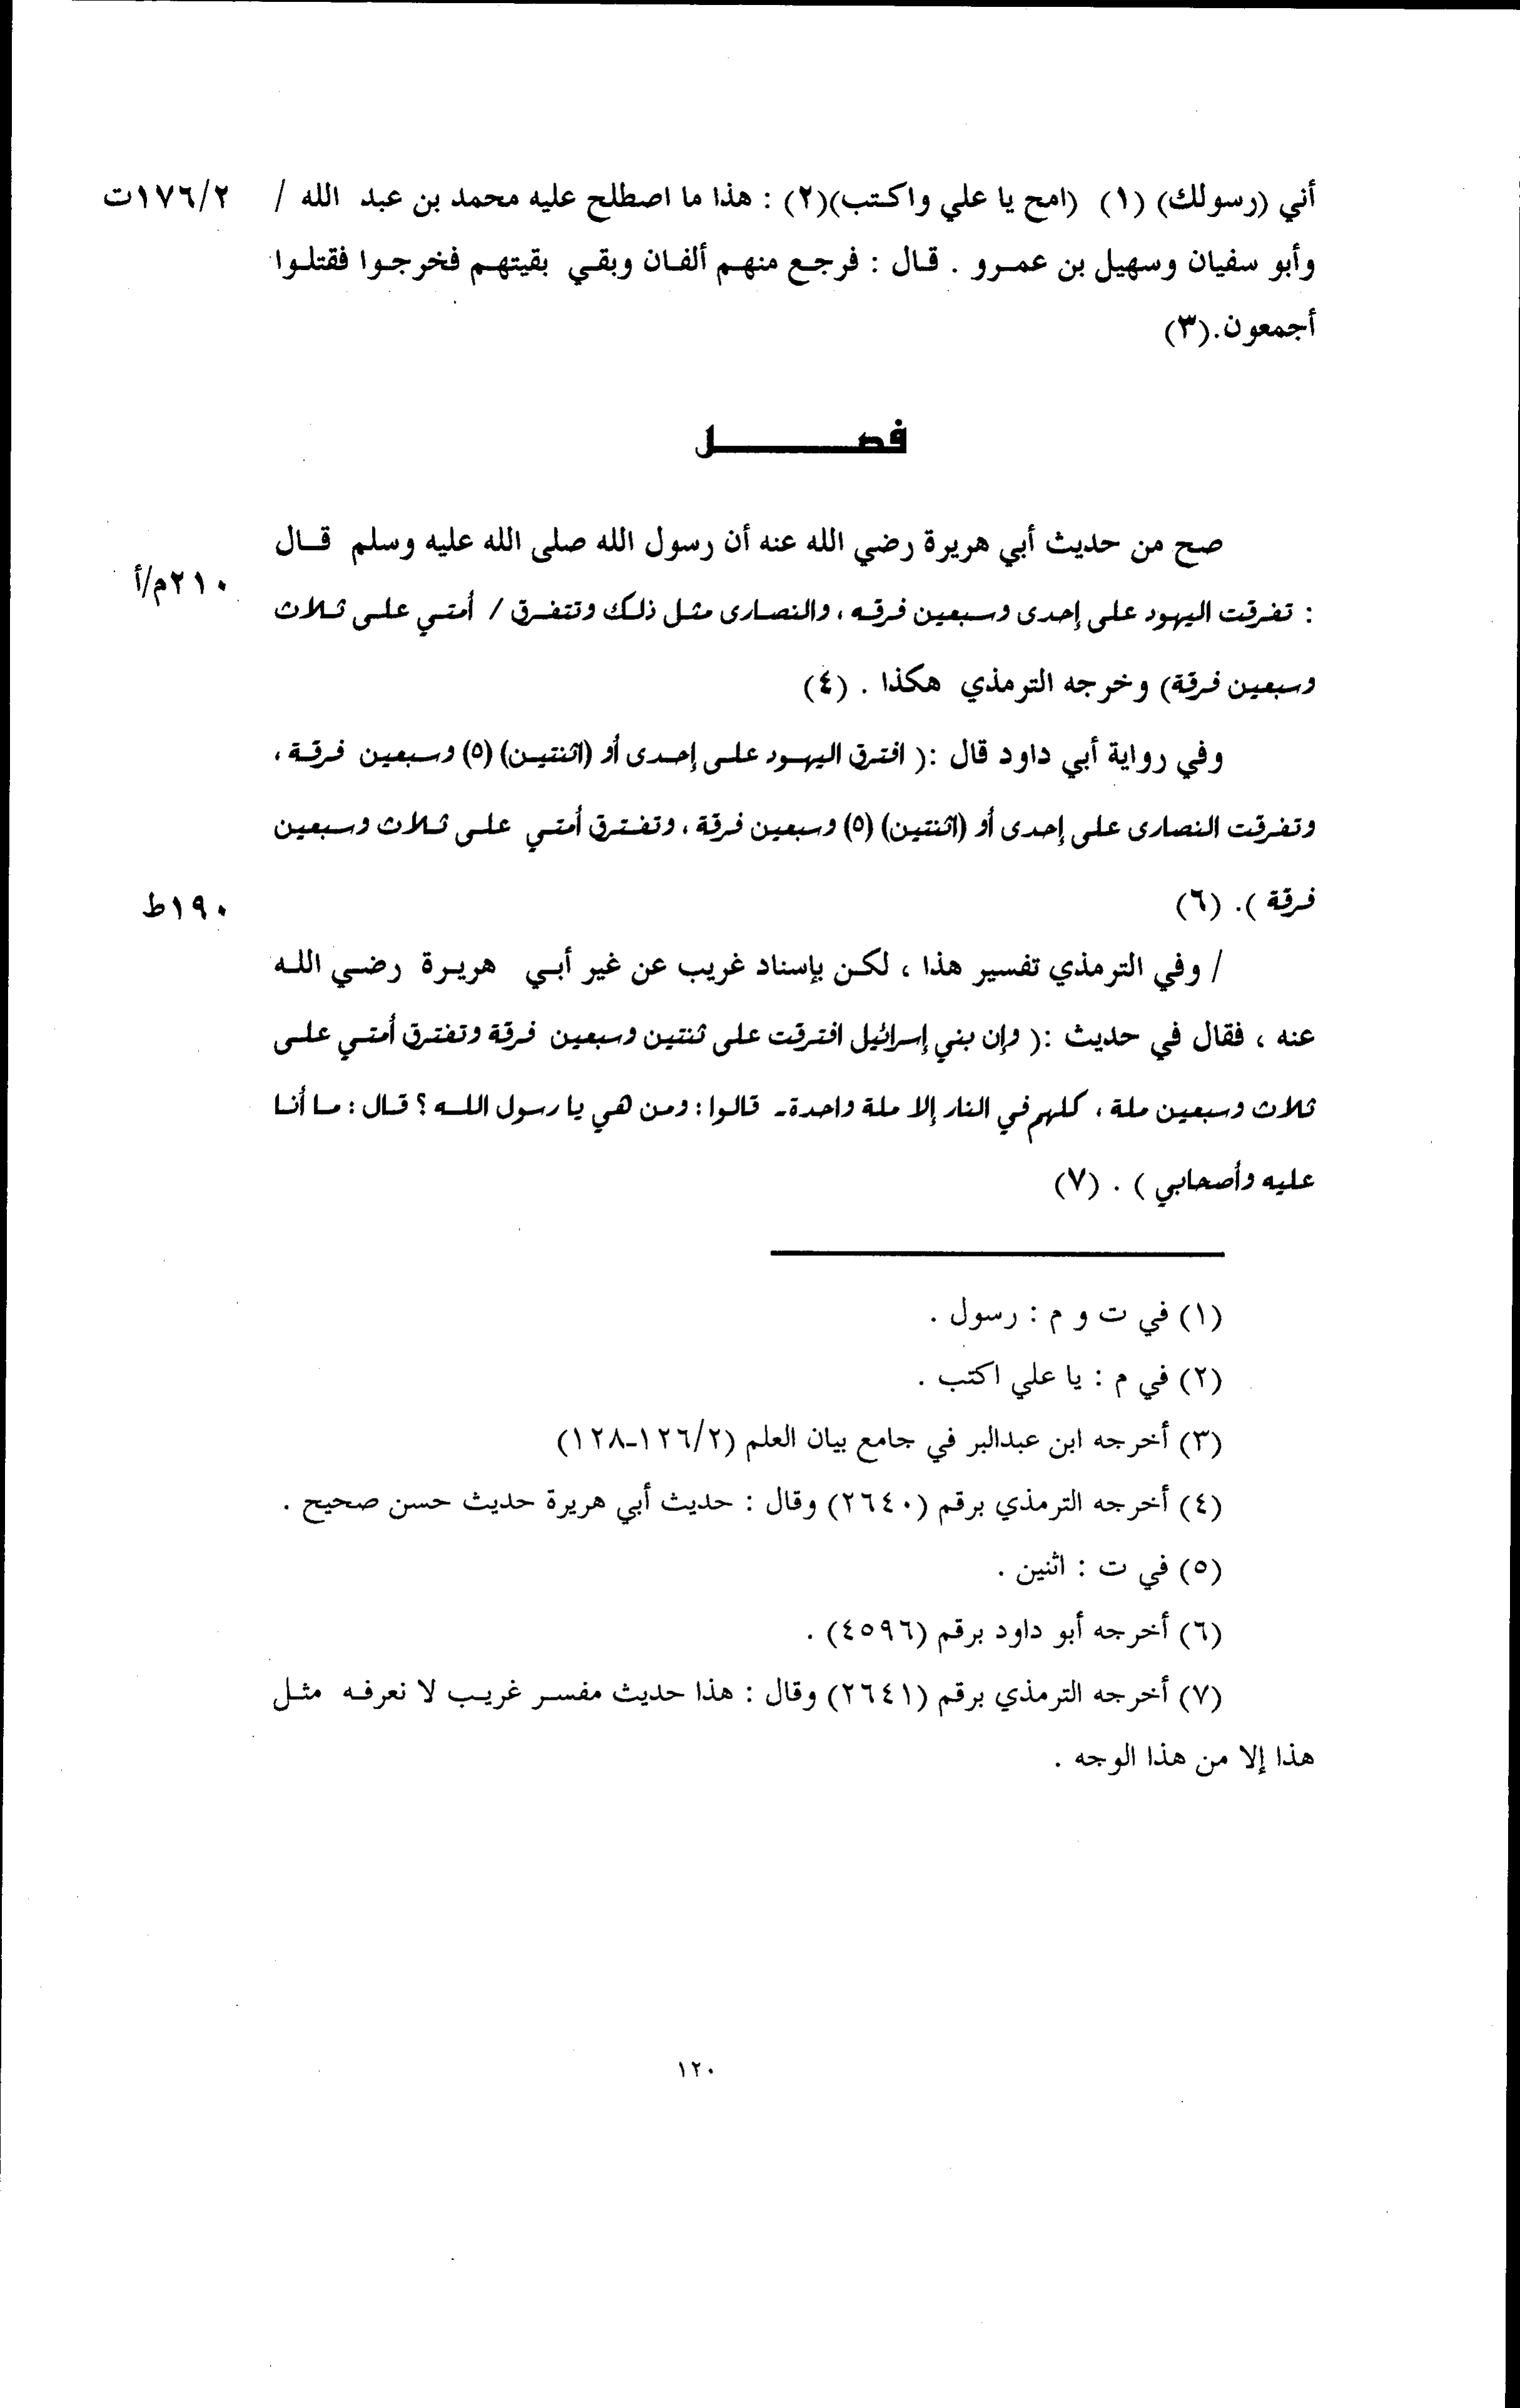 أني (رسولك) (١) (امح يا علي واكتب)(٢) : هذا ما اصطلح عليه محمد بن عبد الله / ١٧٦/٢ت
وأبو سفيان وسهيل بن عمرو . قال : فرجع منهم ألفان وبقي بقيتهم فخرجوا فقتلوا
أجمعون.(٣)
فصل
صح من حديث أبي هريرة رضي الله عنه أن رسول الله صلى الله عليه وسلم قال
٢١٠م/أ
: تفرقت اليهود على إحدى وسبعين فرقه ، والنصارى مثل ذلك وتتفرق / أمتي على ثلاث
وسبعين فرقة) وخرجه الترمذي هكذا . (٤)
وفي رواية أبي داود قال :( افترق اليهود على إحدى أو (اثنتين) (٥) وسبعين فرقة ،
وتفرقت النصارى على إحدى أو (اثنتين) (٥) وسبعين فرقة ، وتفترق أمتي على ثلاث وسبعين
فرقة ). (٦) ١٩٠ط
/ وفي الترمذي تفسير هذا ، لكن بإسناد غريب عن غير أبي هريرة رضي الله
عنه ، فقال في حديث :( وإن بني إسرائيل افترقت على ثنتين وسبعين فرقة وتفترق أمتي على
ثلاث وسبعين ملة ، كلهم في النار إلا ملة واحدة- قالوا : ومن هي يا رسول الله ؟ قال : ما أنا
عليه وأصحابي ) . (٧)
(١) في ت و م : رسول .
(٢) في م : يا علي اكتب .
(٣) أخرجه ابن عبدالبر في جامع بيان العلم (١٢٦/٢-١٢٨)
(٤) أخرجه الترمذي برقم (٢٦٤٠) وقال : حديث أبي هريرة حديث حسن صحيح .
(٥) في ت : اثنين .
(٦) أخرجه أبو داود برقم (٤٥٩٦) .
(٧) أخرجه الترمذي برقم (٢٦٤١) وقال : هذا حديث مفسر غريب لا نعرفه مثل
هذا إلا من هذا الوجه .
١٢٠